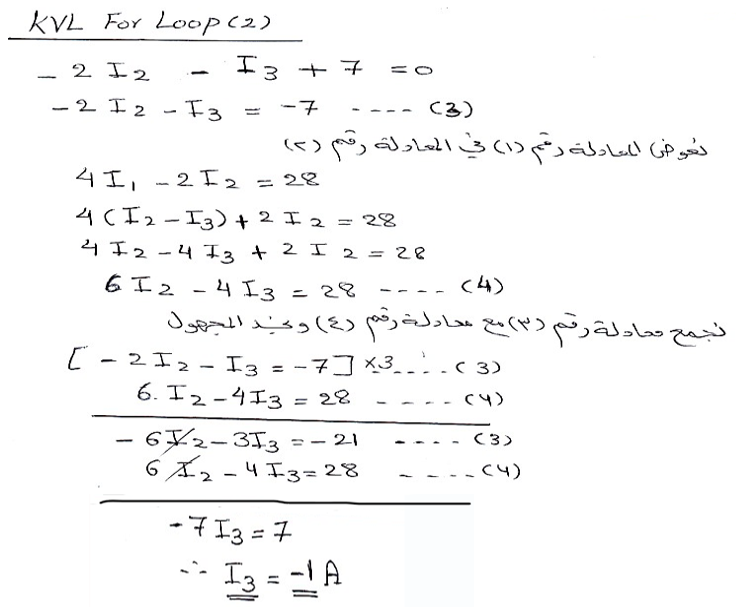 KVL For Loop (2)
- 2 I2 - I3 + 7 = 0
- 2 I2 - I3 = -7 ---- (3)
نعوض المعادلة رقم (١) في المعادلة رقم (٢)
4 I1 - 2 I2 = 28
4 (I2 - I3) + 2 I2 = 28
4 I2 - 4 I3 + 2 I2 = 28
6 I2 - 4 I3 = 28 ---- (4)
نجمع معادلة رقم (٣) مع معادلة رقم (٤) ونجد المجهول
[ - 2 I2 - I3 = -7 ] ×3 .... (3)
6. I2 - 4 I3 = 28 ---- (4)
- 6 I2 - 3 I3 = - 21 ---- (3)
6 I2 - 4 I3 = 28 ---- (4)
- 7 I3 = 7
∴ I3 = -1 A